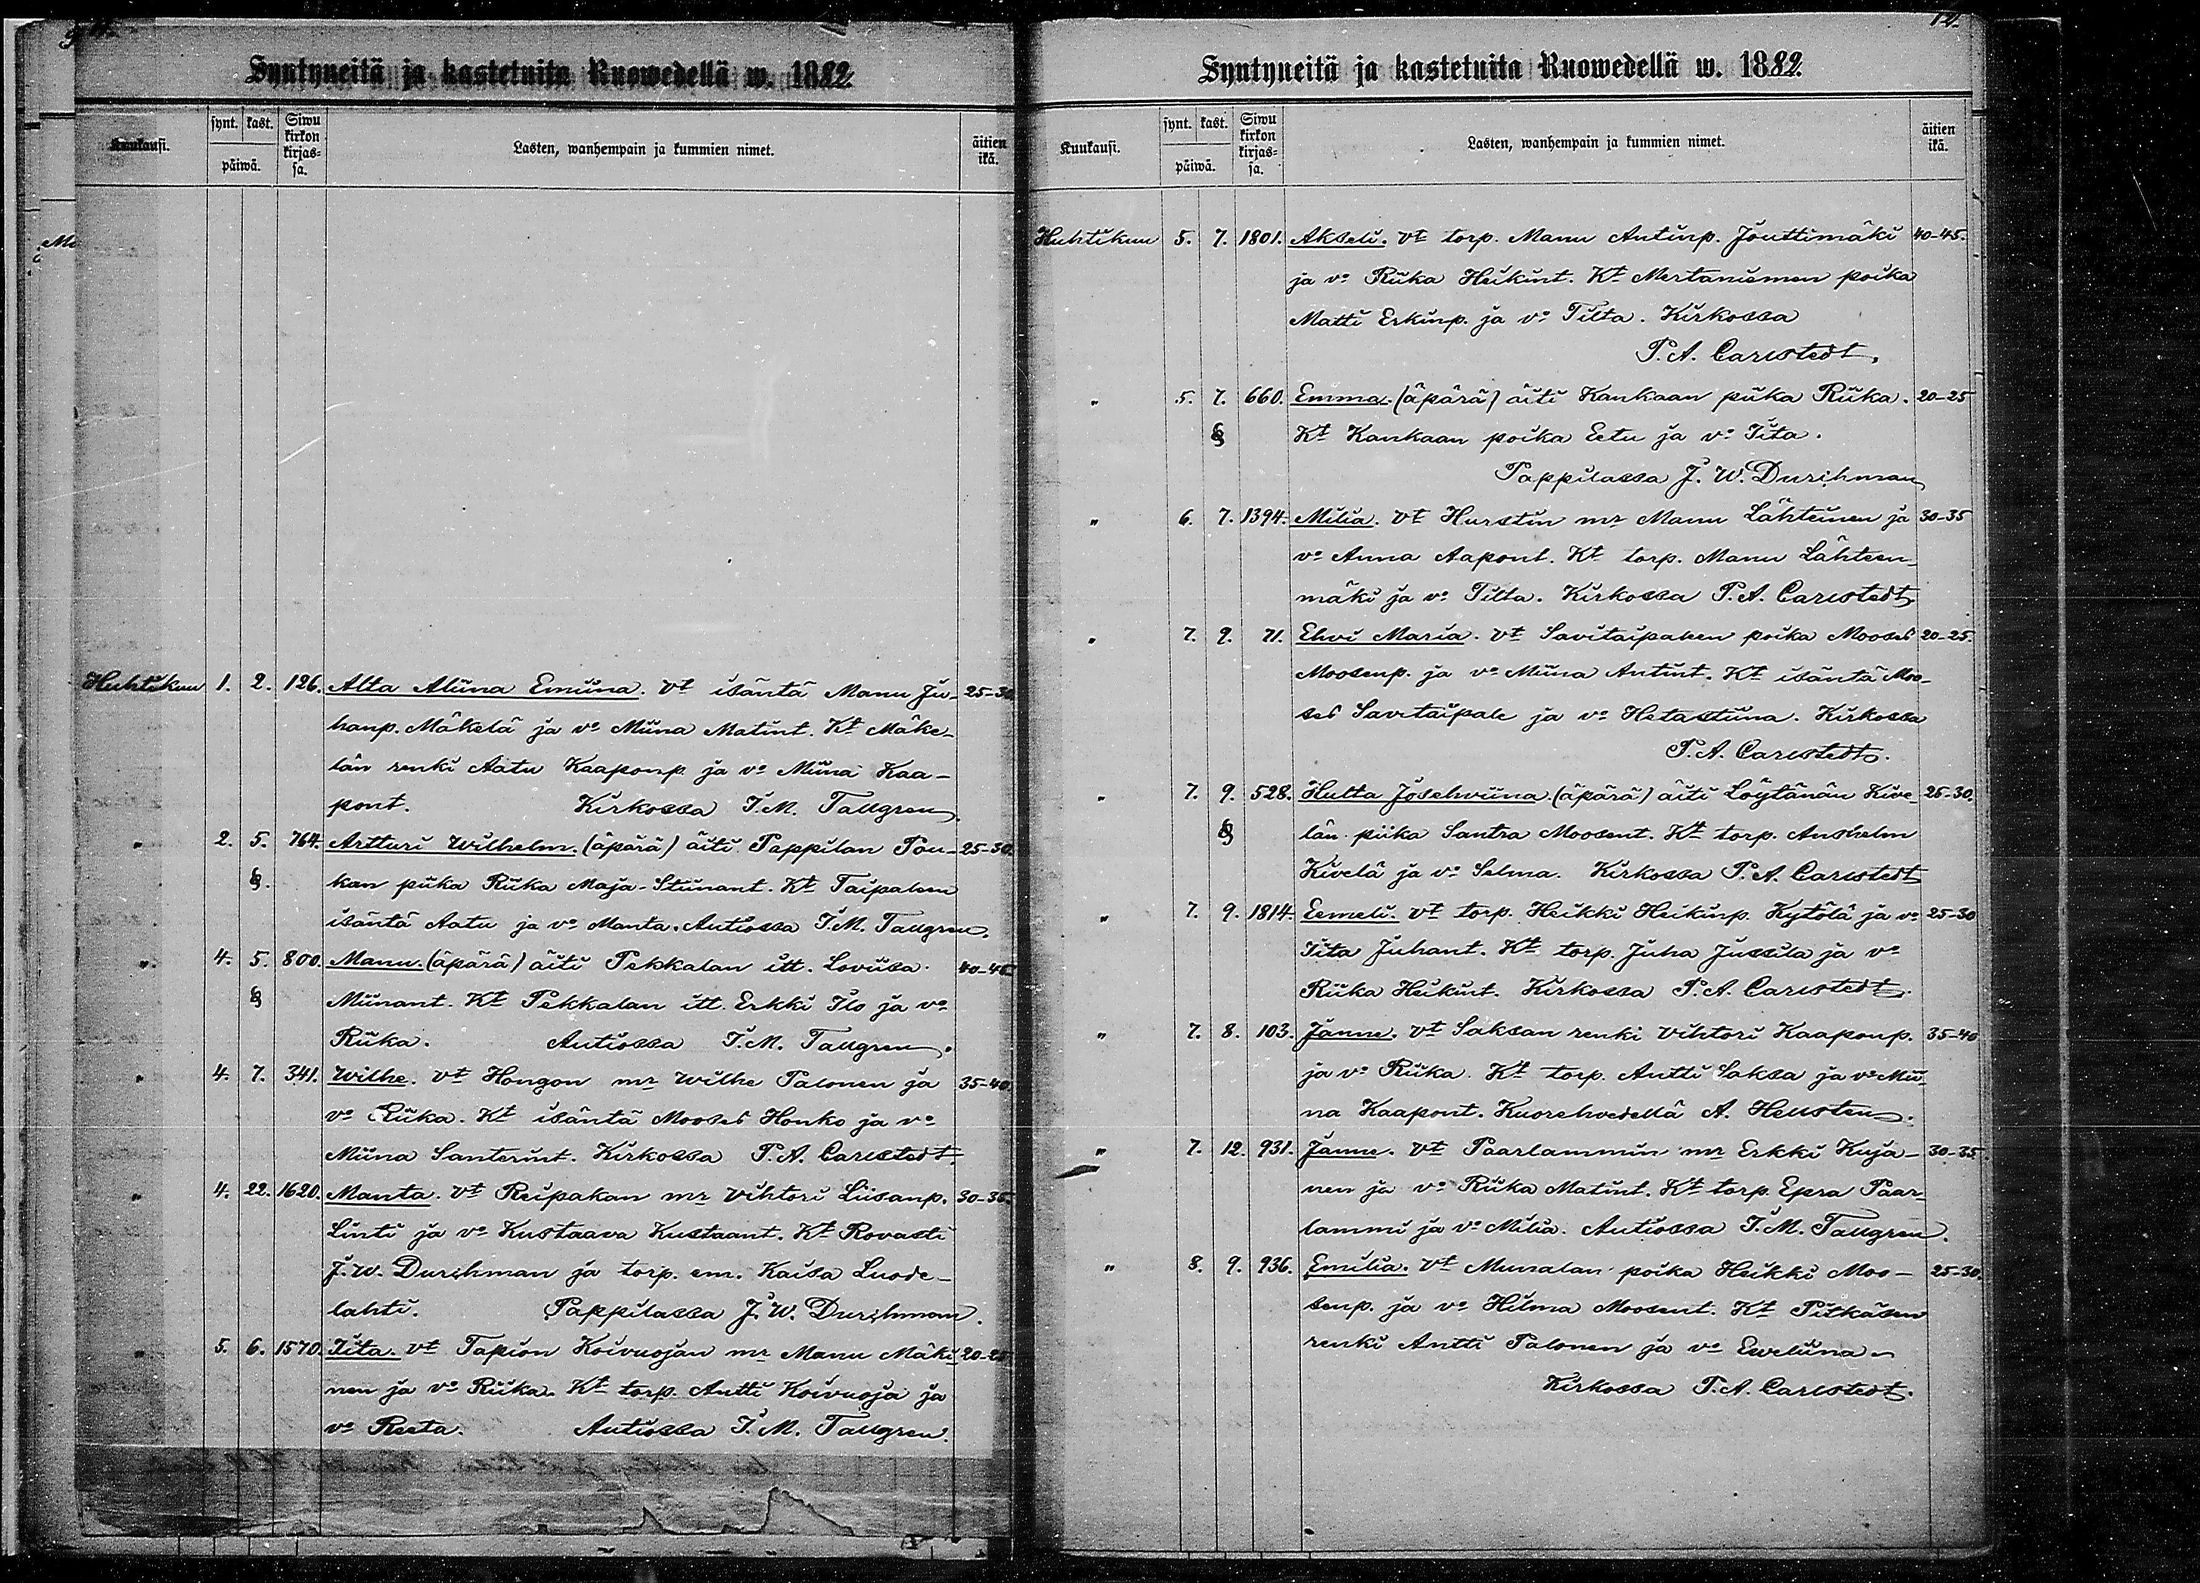 Syntyneitä ja kastetuita Ruowedellä w. 1882.
Kuukausi. synt. kast. päiwä. Siwu kirkon kirjas=sa. Lasten, wanhempain ja kummien nimet. äitien ikä.
Huhtikuu 1. 2. 126. Alta Aliina Emiina. Vt isäntä Manu Ju- 25-30
hanp. Mäkelä ja vo Miina Matint. Kt Mäke-
län renki Aatu Kaaponp. ja vo Miina Kaa-
pont. Kirkossa I. M. Tallgren.
" 2. 5. 764. Artturi Wilhelm. (äpärä) äiti Pappilan Pou- 25-30.
§. kan piika Riika Maja-Stiinant. Kt Taipaleen
isäntä Aatu ja vo Manta. Autiossa I. M. Tallgren.
" 4. 5. 800. Manu. (äpärä) äiti Pekkalan itt. Loviisa 40-45
§ Miinant. Kt Pekkalan itt. Erkki Ilo ja vo
Riika. Autiossa I. M. Tallgren.
" 4. 7. 341. Wilhe. Vt Hongon mr Wilhe Palonen ja 35-40.
vo Riika. Kt isäntä Mooses Honko ja vo
Miina Santerint. Kirkossa P. A. Carlstedt.
" 4. 22. 1620. Manta. Vt Reipakan mr Vihtori Liisanp. 30-35.
Linti ja vo Kustaava Kustaant. Kt Rovasti
J. W. Durchman ja torp. em. Kaisa Luode-
lahti. Pappilassa J. W. Durchman.
" 5. 6. 1570. Iita. Vt Tapion Koivuojan mr Manu Mäki- 20-25
nen ja vo Riika. Kt torp. Antti Koivuoja ja
vo Reeta. Autiossa I. M. Tallgren.
Syntyneitä ja kastetuita Ruowedellä w. 1882.
Kuukausi. synt. kast. päiwä. Siwu kirkon kirjas=sa. Lasten, wanhempain ja kummien nimet. äitien ikä.
Huhtikuu 5. 7. 1801. Akseli. Vt torp. Manu Antinp. Jouttimäki 40-45.
ja vo Riika Heikint. Kt Mertaniemen poika
Matti Erkinp. ja vo Tilta. Kirkossa
P. A. Carlstedt.
" 5. 7. 660. Emma. (äpärä) äiti Kankaan piika Riika. 20-25
§ Kt Kankaan poika Eetu ja vo Iita.
Pappilassa J. W. Durchman
" 6. 7. 1394. Milia. Vt Hurstin mr Manu Lähteinen ja 30-35
vo Anna Aapont. Kt torp. Manu Lähteen-
mäki ja vo Tilta. Kirkossa P. A. Carlstedt
" 7. 9. 71. Elvi Maria. Vt Savitaipaleen poika Mooses 20-25.
Moosenp. ja vo Miina Antint. Kt isäntä Moo-
ses Savitaipale ja vo Hetastiina. Kirkossa
P. A. Carlstedt.
" 7. 9. 528. Hulta Josehviina. (äpärä) äiti Löytänän Kive- 25-30.
§ län piika Santra Moosent. Kt torp. Anshelm
Kivelä ja vo Selma. Kirkossa P. A. Carlstedt
" 7. 9. 1814. Eemeli. Vt torp. Heikki Heikinp. Kytölä ja vo 25-30
Iita Juhant. Kt torp. Juha Jussila ja vo
Riika Heikint. Kirkossa P. A. Carlstedt.
" 7. 8. 103. Janne. Vt Saksan renki Vihtori Kaaponp. 35-40
ja vo Riika. Kt torp. Antti Saksa ja vo Mii-
na Kaapont. Kuorehvedellä A. Hellsten.
" 7. 12. 931. Janne. Vt Paarlammin mr Erkki Kuja- 30-35.
nen ja vo Riika Matint. Kt torp. Epra Paar-
lammi ja vo Milia. Autiossa I. M. Tallgren.
" 8. 9. 936. Emilia. Vt Musalan poika Heikki Moo- 25-30.
senp. ja vo Hilma Moosent. Kt Pitkäsen
renki Antti Palonen ja vo Eweliina.
Kirkossa P. A. Carlstedt.